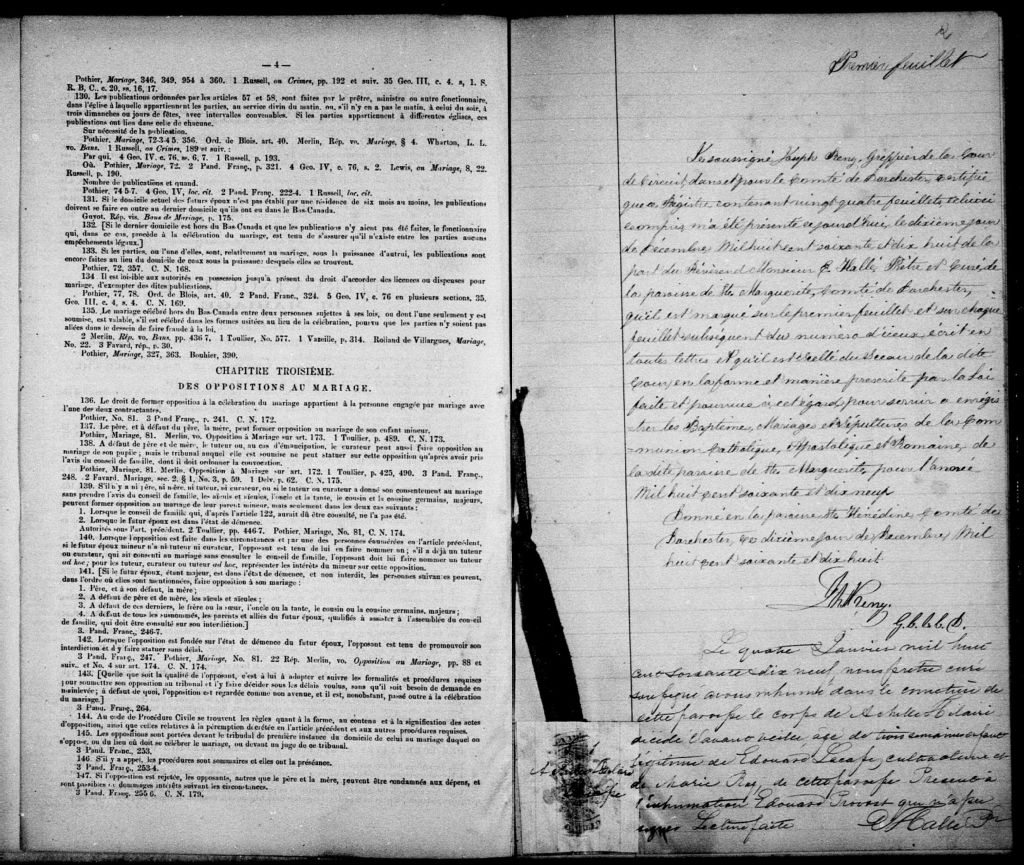 — 4 —
Pothier, Mariage, 346, 349, 954 à 360. 1 Russell, on Crimes, pp. 192 et suiv. 35 Geo. III, c. 4. s, 1. S.
R. B, C., c. 20, ss. 16, 17.
130. Les publications ordonnées par les articles 57 et 58, sont faites par le prêtre, ministre ou autre fonctionnaire,
dans l'église à laquelle appartiennent les parties, au service divin du matin, ou, s'il n'y en a pas le matin, à celui du soir, à
trois dimanches ou jours de fêtes, avec intervalles convenables. Si les parties appartiennent à différentes églises, ces
publications ont lieu dans celle de chacune.
Sur nécessité de la publication.
Pothier, Mariage, 72-3-4 5. 356. Ord. de Blois, art. 40. Merlin, Rép. vo. Mariage, § 4. Wharton, L. L.
vo. Bans. 1 Russell, on Crimes, 189 et suiv. :
Par qui. 4 Geo. IV, c. 76, ss. 6, 7. 1 Russell, p. 193.
Où. Pothier, Mariage, 72. 2 Pand. Franç., p. 321. 4 Geo. IV, c. 76, s. 2. Lewis, on Mariage, 8, 22.
Russell, p. 190.
Nombre de publications et quand.
Pothier, 74 5-7. 4 Geo. IV, loc. cit. 2 Pand. Franç., 222-4. 1 Russell, loc. cit.
131. Si le domicile actuel des futurs époux n'est pas établi par une résidence de six mois au moins, les publications
doivent se faire en outre au dernier domicile qu'ils ont eu dans le Bas-Canada.
Guyot. Rép. vis. Bans de Mariage, p. 175.
132. [Si le dernier domicile est hors du Bas-Canada et que les publications n'y aient pas été faites, le fonctionnaire
qui, dans ce cas, procède à la célébration du mariage, est tenu de s'assurer qu'il n'existe entre les parties aucuns
empêchements légaux.]
133. Si les parties, ou l'une d'elles, sont, relativement au mariage, sous la puissance d'autrui, les publications sont
encore faites au lieu du domicile de ceux sous la puissance desquels elles se trouvent.
Pothier, 72, 357. C. N. 168.
134 Il est loisible aux autorités en possession jusqu'à présent du droit d'accorder des licences ou dispenses pour
mariage, d'exempter des dites publications.
Pothier, 77, 78. Ord. de Blois, art. 40. 2 Pand. Franc., 324. 5 Geo. IV, c. 76 en plusieurs sections, 35,
Geo. III, c. 4, s. 4. C. N. 169.
135. Le mariage célébré hors du Bas-Canada entre deux personnes sujettes à ses lois, ou dont l'une seulement y est
soumise, est valable, s'il est célébré dans les formes usitées au lieu de la célébration, pourvu que les parties n'y soient pas
allées dans le dessein de faire fraude à la loi.
2 Merlin, Rép. vo. Bans, pp. 436 7. 1 Toullier, No. 577. 1 Vazeille, p. 314. Rolland de Villargues, Mariage,
No. 22. 3 Favard, rép., p. 30.
Pothier, Mariage, 327, 363. Bouhier, 390.
CHAPITRE TROISIÈME.
DES OPPOSITIONS AU MARIAGE.
136. Le droit de former opposition à la célébration du mariage appartient à la personne engagée par mariage avec
l'une des deux contractantes.
Pothier, No. 81. 3 Pand Franç., p. 241. C. N. 172.
137. Le père, et à défaut du père, la mère, peut former opposition au mariage de son enfant mineur.
Pothier, Mariage, 81. Merlin, vo. Opposition à Mariage sur art. 173. 1 Toullier, p. 489. C. N. 173.
138. A défaut de père et de mère, le tuteur ou, au cas d'émancipation, le curateur peut aussi faire opposition au
mariage de son pupile ; mais le tribunal auquel elle est soumise ne peut statuer sur cette opposition qu'après avoir pris
l'avis du conseil de famille, dont il doit ordonner la convocation.
Pothier, Mariage, 81. Merlin, Opposition à Mariage sur art. 172. 1 Toullier, p. 425, 490. 3 Pand. Franç.,
248. 2 Favard, Mariage, sec. 2, § 1, No. 3, p. 59. 1 Delv. p. 62. C. N. 175.
139. S'il n'y a ni père, ni mère, ni tuteur, ni curateur, ou si le tuteur ou curateur a donné son consentement au mariage
sans prendre l'avis du conseil de famille, les aïeuls et aïeules, l'oncle et la tante, le cousin et la cousine germains, majeurs,
peuvent former opposition au mariage de leur parent mineur, mais seulement dans les deux cas suivants :
1. Lorsque le conseil de famille qui, d'après l'article 122, aurait dû être consulté, ne l'a pas été.
2. Lorsque le futur époux est dans l'état de démence.
Autorités sous l'art. précédent. 2 Toullier, pp. 446-7. Pothier, Mariage, No. 81, C. N. 174.
140. Lorsque l'opposition est faite dans les circonstances et par une des personnes énumérées en l'article précédent,
si le futur époux mineur n'a ni tuteur ni curateur, l'opposant est tenu de lui en faire nommer un ; s'il a déjà un tuteur
ou curateur, qui ait consenti au mariage sans consulter le conseil de famille, l'opposant doit lui faire nommer un tuteur
ad hoc ; pour les tuteur, curateur ou tuteur ad hoc, représenter les intérêts du mineur sur cette opposition.
141. [Si le futur époux, étant majeur, est dans l'état de démence, et non interdit, les personnes suivantes peuvent,
dans l'ordre où elles sont mentionnées, faire opposition à son mariage :
1. Père, et à son défaut, la mère ;
2. A défaut de père et de mère, les aïeuls et aïeules ;
3. A défaut de ces derniers, le frère ou la sœur, l'oncle ou la tante, le cousin ou la cousine germains, majeurs ;
4. A défaut de tous les susnommés, les parents et alliés du futur époux, qualifiés à assister à l'assemblée du conseil
de famille, qui doit être consulté sur son interdiction.]
3. Pand. Franc., 246-7.
142. Lorsque l'opposition est fondée sur l'état de démence du futur époux, l'opposant est tenu de promouvoir son
interdiction et d'y faire statuer sans délai.
3 Pand. Franç., 247. Pothier, Mariage, No. 81. 22 Rép. Merlin, vo. Opposition au Mariage, pp. 88 et
suiv. et No. 4 sur art. 174. C. N. 174.
143. [Quelle que soit la qualité de l'opposant, c'est à lui à adopter et suivre les formalités et procédures requises
pour soumettre son opposition au tribunal et l'y faire décider sous les délais voulus, sans qu'il soit besoin de demande en
mainlevée ; à défaut de quoi, l'opposition est regardée comme non avenue, et il est, nonobstant, passé outre à la célébration
du mariage.]
3 Pand. Franç., 264.
144. Au code de Procédure Civile se trouvent les règles quant à la forme, au contenu et à la signification des actes
d'opposition, ainsi que celles relatives à la péremption décrétée en l'article précédent et aux autres procédures requises.
145. Les oppositions sont portées devant le tribunal de première instance du domicile de celui au mariage duquel on
s'oppose, ou du lieu où doit se célébrer le mariage, ou devant un juge de ce tribunal.
3 Pand. Franc., 253.
146. S'il y a appel, les procédures sont sommaires et elles ont la préséance.
3 Pand. Franç., 253-4.
147. Si l'opposition est rejetée, les opposants, autres que le père et la mère, peuvent être condamnés aux dépens, et
sont passibles de dommages intérêts suivant les circonstances.
3 Pand. Franç. 255 6. C. N. 179.
Premier feuillet
Je soussigné Joseph Reny, Greffier de la Cour
de Circuit, dans et pour le Comté de Dorchester, certifie
que ce Registre contenant vingt quatre feuillets celui ci
compris m'a été présenté ce jourd'hui, le dixième jour
de Décembre Mil huit cent soixante et dix huit de la
part du Révérend Monsieur E. Hallé Prêtre et Curé de
la paroisse de Ste Marguerite, Comté de Dorchester,
qu'il est marqué sur le premier feuillet et sur chaque
feuillet subséquent du numéro d'iceux écrit en
toutes lettres et qu'il est scellé du Sceau de la dite
Cour, en la forme et manière prescrite par la Loi
faite et pourvue à cet égard pour servir a enregis
trer les Baptême, Mariages et Sépultures de la Com
=munion Catholique, Apostolique et Romaine, de
la dite paroisse de Ste Marguerite pour l'année
Mil huit cent soixante et dix neuf
Donné en la paroisse Ste Hénédine Comté de
Dorchester, ce dixième jour de Decembre, Mil
huit cent soixante et dix huit
Jh Reny.
G. C. C. C. D.
Le quatre Janvier mil huit
cent soixante dix neuf, nous prêtre curé
soussigné avons inhumé dans le cimetière de
cette paroisse le corps de Achille Hilaire
décédé l'avant veille agé de trois semaines
légitime de Edouard cultivateur et
de Marie Roy de cette paroisse Présent à
l'inhumation Edouard Provost qui n'a pu
signer Lecture faite E Hallé Ptre